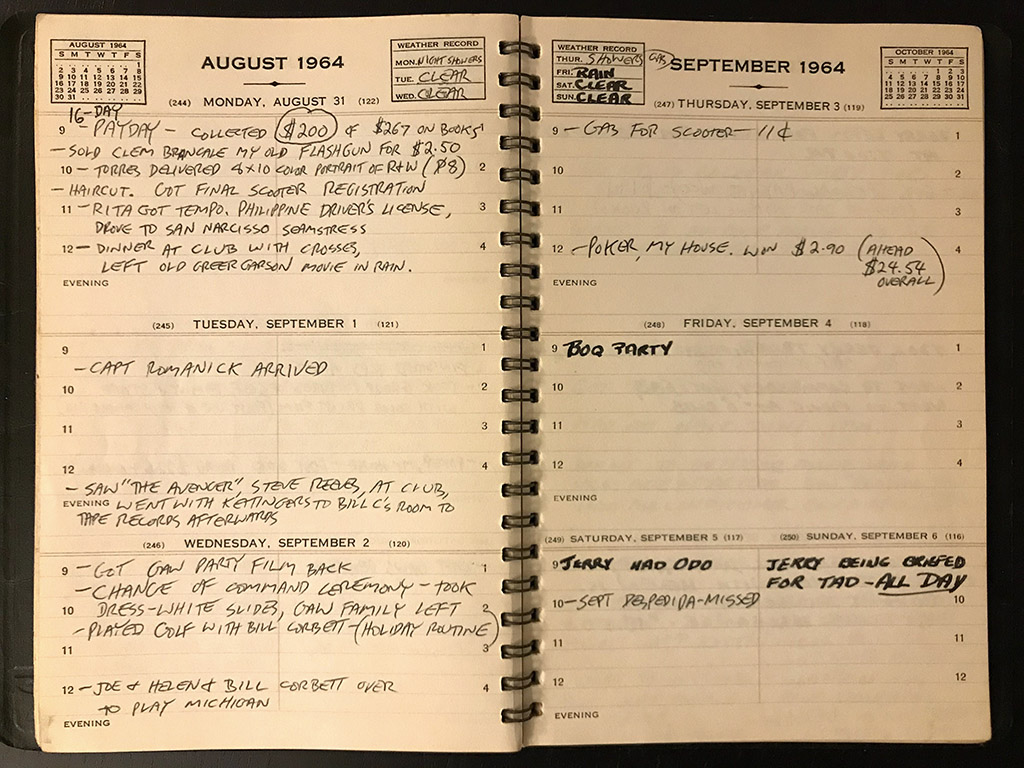 AUGUST 1964
S M T W T F S
1
2 3 4 5 6 7 8
9 10 11 12 13 14 15
16 17 18 19 20 21 22
23 24 25 26 27 28 29
30 31
AUGUST 1964
WEATHER RECORD
MON. NIGHT SHOWERS
TUE. CLEAR
WED. CLEAR
(244) MONDAY, AUGUST 31 (122)
16-DAY
9 - PAYDAY - COLLECTED $200 OF $267 ON BOOKS 1
- SOLD CLEM BRANGALE MY OLD FLASHGUN FOR $2.50
10 - TORRES DELIVERED 8x10 COLOR PORTRAIT OF R+W ($8) 2
- HAIRCUT. GOT FINAL SCOOTER REGISTRATION
11 - RITA GOT TEMPO. PHILIPPINE DRIVER'S LICENSE, 3
DROVE TO SAN NARCISSO SEAMSTRESS
12 - DINNER AT CLUB WITH CROSSES, 4
LEFT OLD GREER GARSON MOVIE IN RAIN.
EVENING
(245) TUESDAY, SEPTEMBER 1 (121)
9 1
- CAPT ROMANICK ARRIVED
10 2
11 3
12 4
- SAW "THE AVENGER", STEVE REEVES, AT CLUB,
EVENING WENT WITH KETTINGERS TO BILL C'S ROOM TO
TAPE RECORDS AFTERWARDS
(246) WEDNESDAY, SEPTEMBER 2 (120)
9 - GOT GAW PARTY FILM BACK 1
- CHANGE OF COMMAND CEREMONY - TOOK
10 DRESS-WHITE SLIDES, GAW FAMILY LEFT 2
- PLAYED GOLF WITH BILL CORBETT - (HOLIDAY ROUTINE)
11 3
12 - JOE & HELEN & BILL CORBETT OVER 4
TO PLAY MICHIGAN
EVENING
WEATHER RECORD
THUR. SHOWERS
FRI. RAIN
SAT. CLEAR
SUN. CLEAR
SEPTEMBER 1964
OCTOBER 1964
S M T W T F S
1 2 3
4 5 6 7 8 9 10
11 12 13 14 15 16 17
18 19 20 21 22 23 24
25 26 27 28 29 30 31
(247) THURSDAY, SEPTEMBER 3 (119)
9 - GAS FOR SCOOTER - 11¢ 1
10 2
11 3
12 - POKER, MY HOUSE. WON $2.90 (AHEAD 4
$24.54
OVERALL)
EVENING
(248) FRIDAY, SEPTEMBER 4 (118)
9 BOQ PARTY 1
10 2
11 3
12 4
EVENING
(249) SATURDAY, SEPTEMBER 5 (117) (250) SUNDAY, SEPTEMBER 6 (116)
9 JERRY HAD ODO
10 - SEPT DESPEDIDA - MISSED
11
12
EVENING
JERRY BEING BRIEFED
FOR TAD - ALL DAY
10
11
12